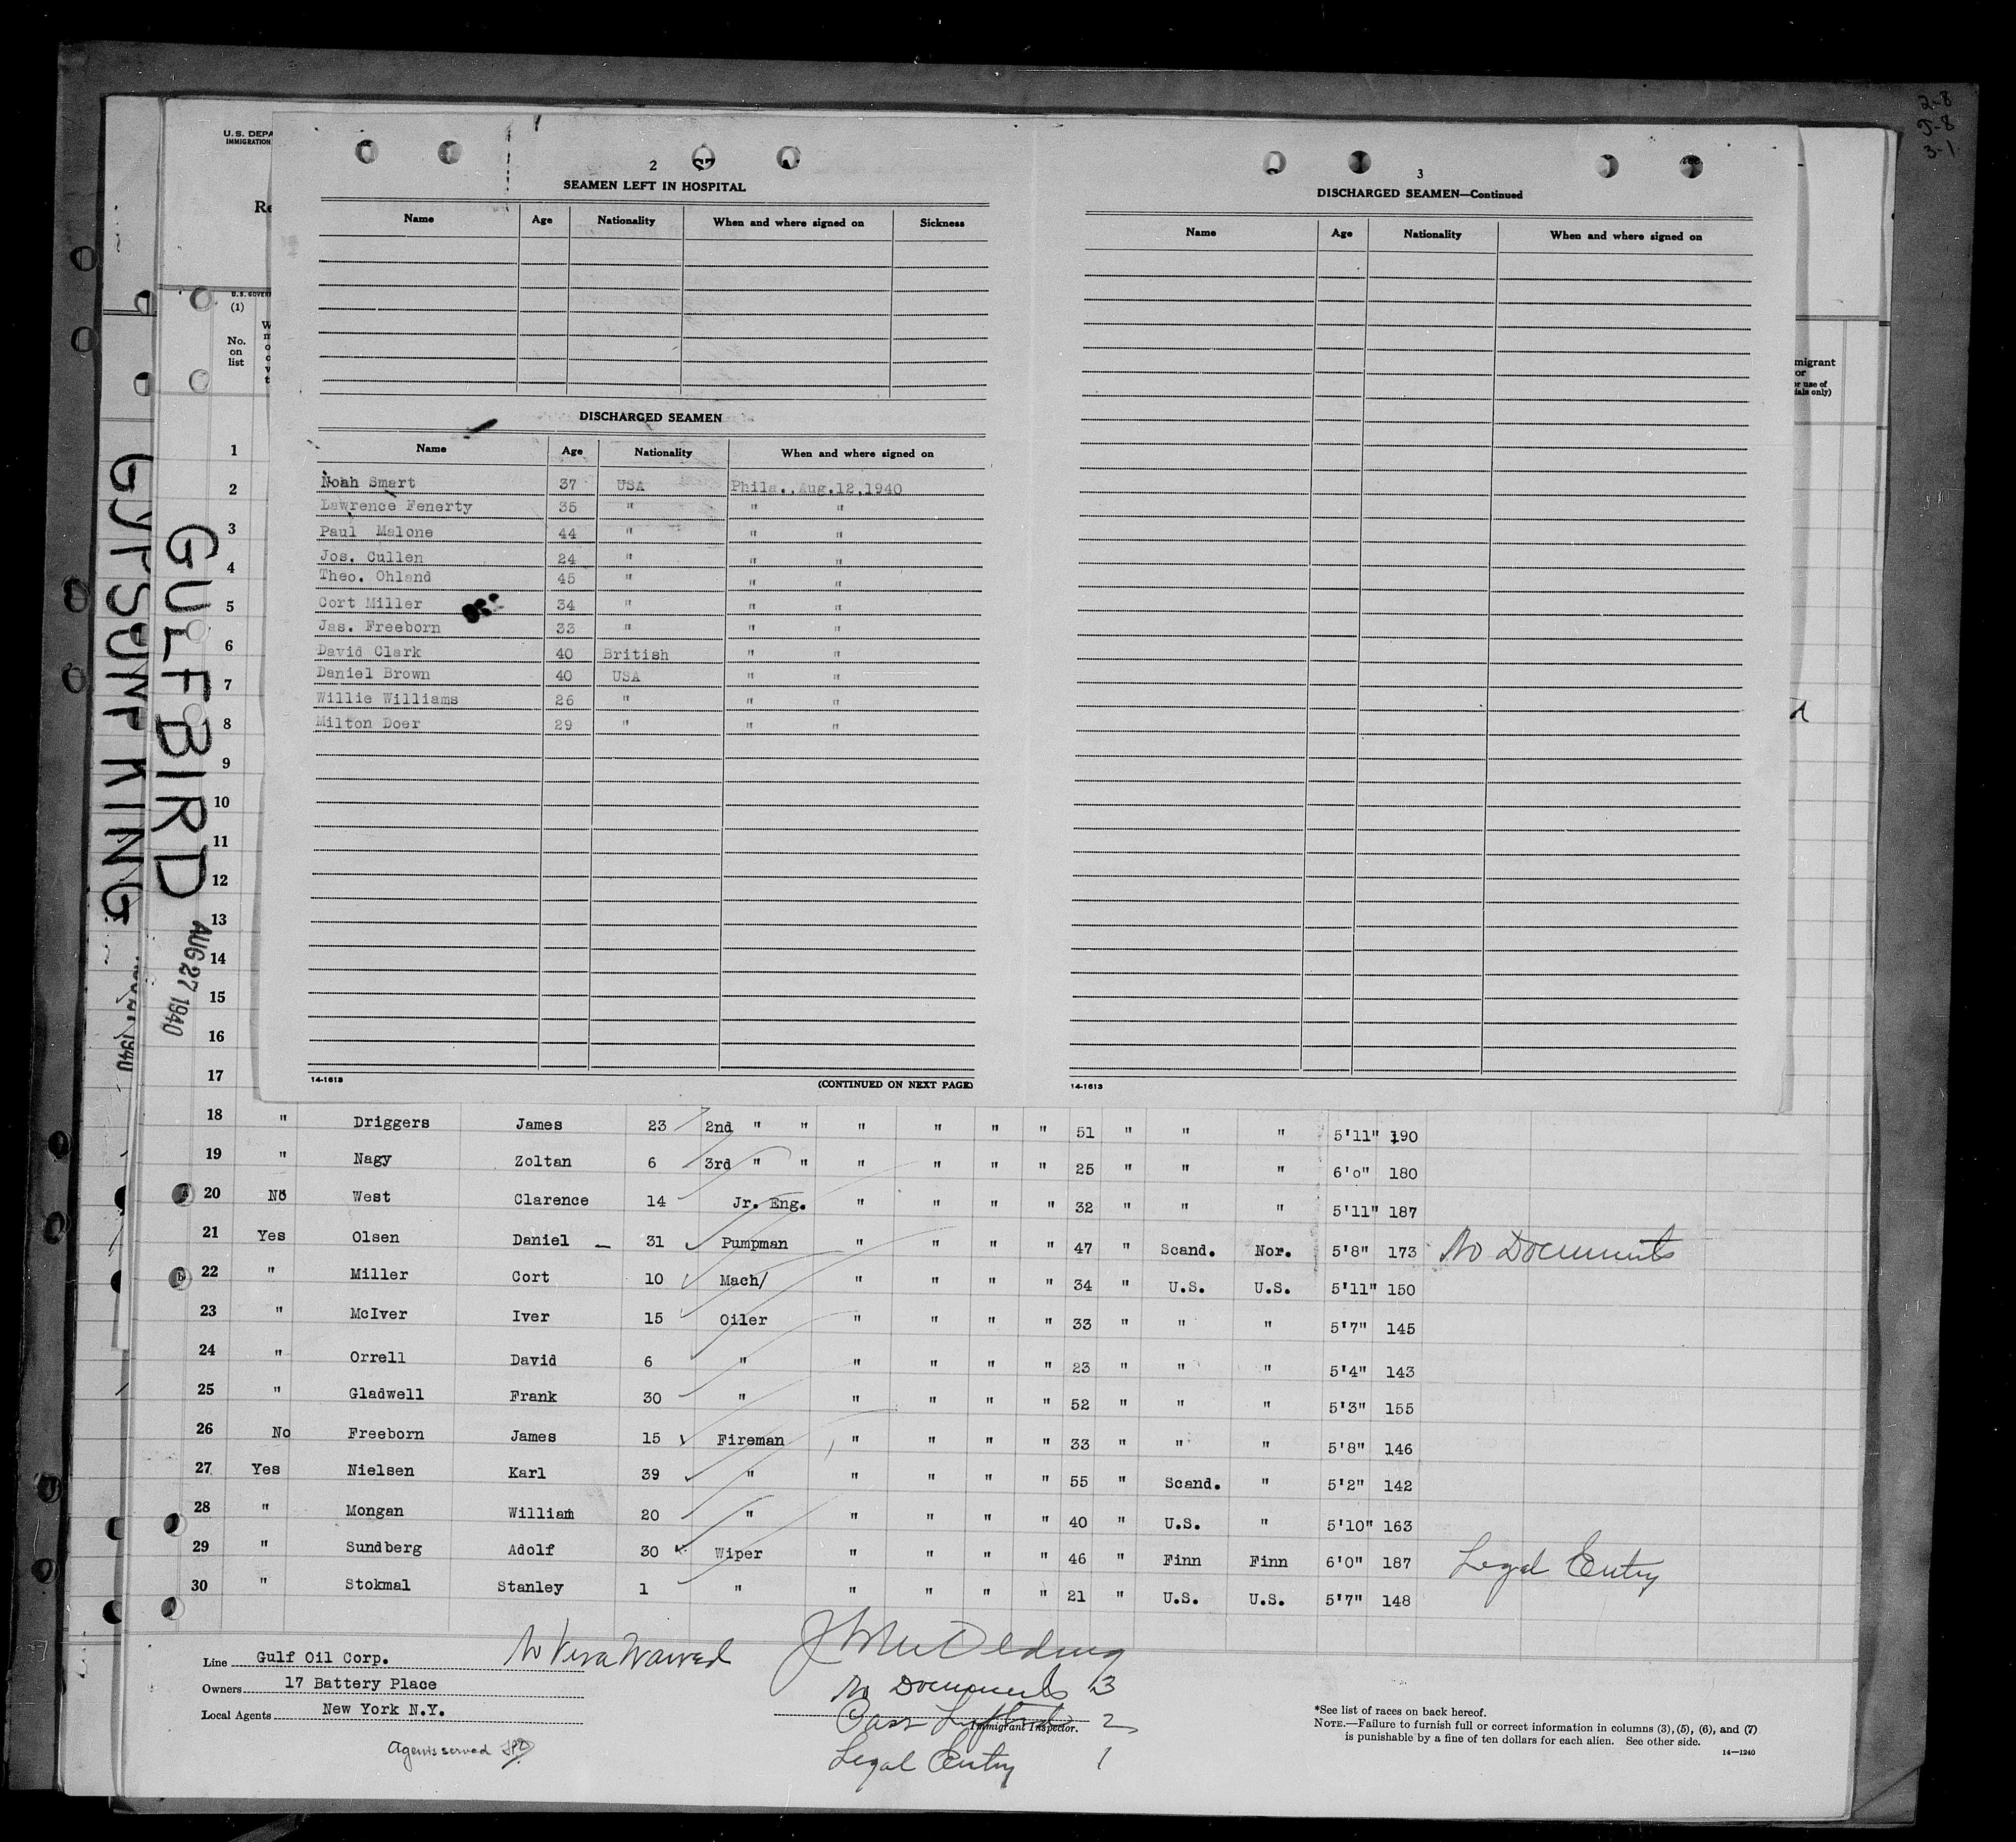 2-8
5-8
3-1
U.S. DEPA
IMMIGRATION
Re
U.S. GOVER
(1)
No.
on
list
W
m
o
c
v
t
migrant
or
or use of
ials only)
GYPSUM KING
GULFBIRD
AUG 27 1940
1940
2
SEAMEN LEFT IN HOSPITAL
Name Age Nationality When and where signed on Sickness
DISCHARGED SEAMEN
Name Age Nationality When and where signed on
Noah Smart 37 USA Phila., Aug.12,1940
Lawrence Fenerty 35 " " "
Paul Malone 44 " " "
Jos. Cullen 24 " " "
Theo. Ohland 45 " " "
Cort Miller 34 " " "
Jas. Freeborn 33 " " "
David Clark 40 British " "
Daniel Brown 40 USA " "
Willie Williams 26 " " "
Milton Doer 29 " " "
14-1613 (CONTINUED ON NEXT PAGE)
3
DISCHARGED SEAMEN—Continued
Name Age Nationality When and where signed on
14-1613
1
2
3
4
5
6
7
8
9
10
11
12
13
14
15
16
17
18 " Driggers James 23 2nd " " " " " " 51 " " " 5'11" 190
19 " Nagy Zoltan 6 3rd " " " " " " 25 " " " 6'0" 180
20 No West Clarence 14 Jr. Eng. " " " " 32 " " " 5'11" 187
21 Yes Olsen Daniel 31 Pumpman " " " " 47 " Scand. Nor. 5'8" 173 No Documents
22 " Miller Cort 10 Mach/ " " " " 34 " U.S. U.S. 5'11" 150
23 " McIver Iver 15 Oiler " " " " 33 " " " 5'7" 145
24 " Orrell David 6 " " " " " 23 " " " 5'4" 143
25 " Gladwell Frank 30 " " " " " 52 " " " 5'3" 155
26 No Freeborn James 15 Fireman " " " " 33 " " " 5'8" 146
27 Yes Nielsen Karl 39 " " " " " 55 " Scand. " 5'2" 142
28 " Mongan William 20 " " " " " 40 " U.S. " 5'10" 163
29 " Sundberg Adolf 30 Wiper " " " " 46 " Finn Finn 6'0" 187 Legal Entry
30 " Stokmal Stanley 1 " " " " " 21 " U.S. U.S. 5'7" 148
Line Gulf Oil Corp.
Owners 17 Battery Place
Local Agents New York N.Y.
Agents served
No Visa Waived
No Documents 3
2
Immigrant Inspector.
Legal Entry 1
*See list of races on back hereof.
NOTE.—Failure to furnish full or correct information in columns (3), (5), (6), and (7)
is punishable by a fine of ten dollars for each alien. See other side.
14—1240